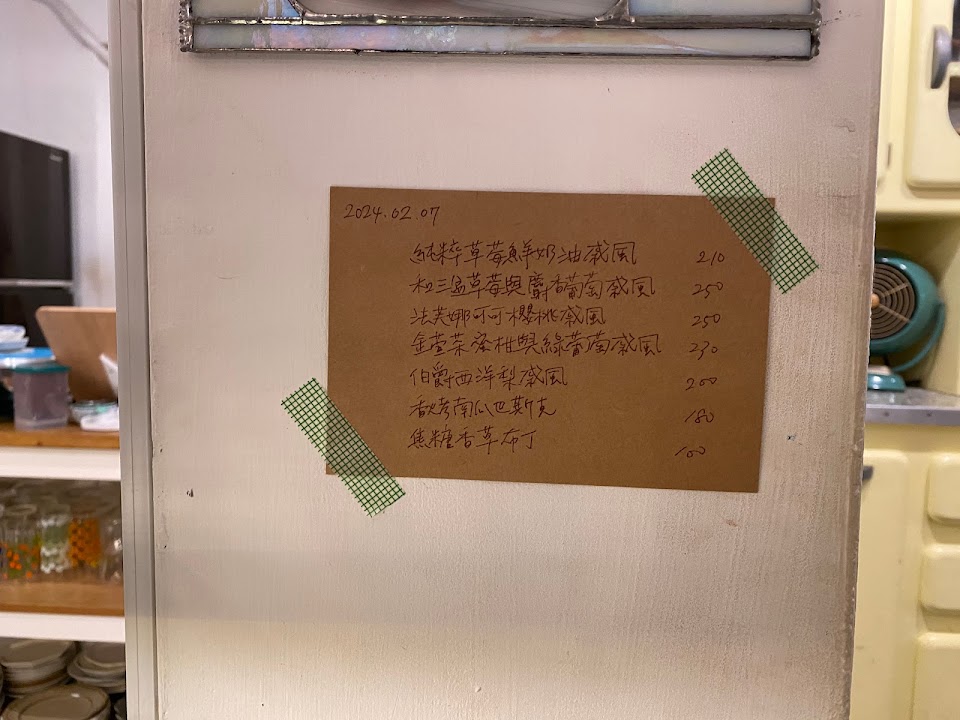 2024.02.07
純粹草莓鮮奶油戚風 210
和三盆草莓與麝香葡萄戚風 250
法芙娜可可櫻桃戚風 250
金萱茶蜜柑與綠葡萄戚風 230
伯爵西洋梨戚風 200
香烤南瓜巴斯克 180
焦糖香草布丁 100